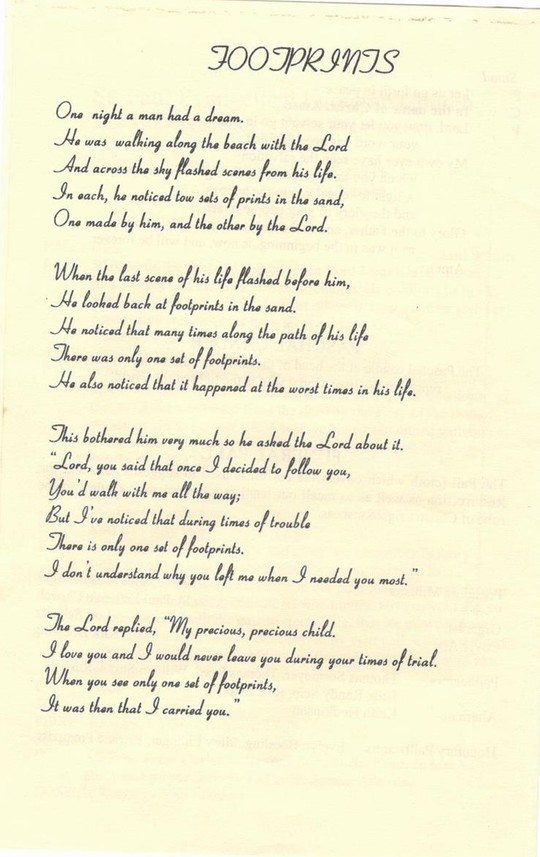 FOOTPRINTS
One night a man had a dream.
He was walking along the beach with the Lord
And across the sky flashed scenes from his life.
In each, he noticed tow sets of prints in the sand,
One made by him, and the other by the Lord.
When the last scene of his life flashed before him,
He looked back at footprints in the sand.
He noticed that many times along the path of his life
There was only one set of footprints.
He also noticed that it happened at the worst times in his life.
This bothered him very much so he asked the Lord about it.
"Lord, you said that once I decided to follow you,
You'd walk with me all the way;
But I've noticed that during times of trouble
There is only one set of footprints.
I don't understand why you left me when I needed you most."
The Lord replied, "My precious, precious child.
I love you and I would never leave you during your times of trial.
When you see only one set of footprints,
It was then that I carried you."